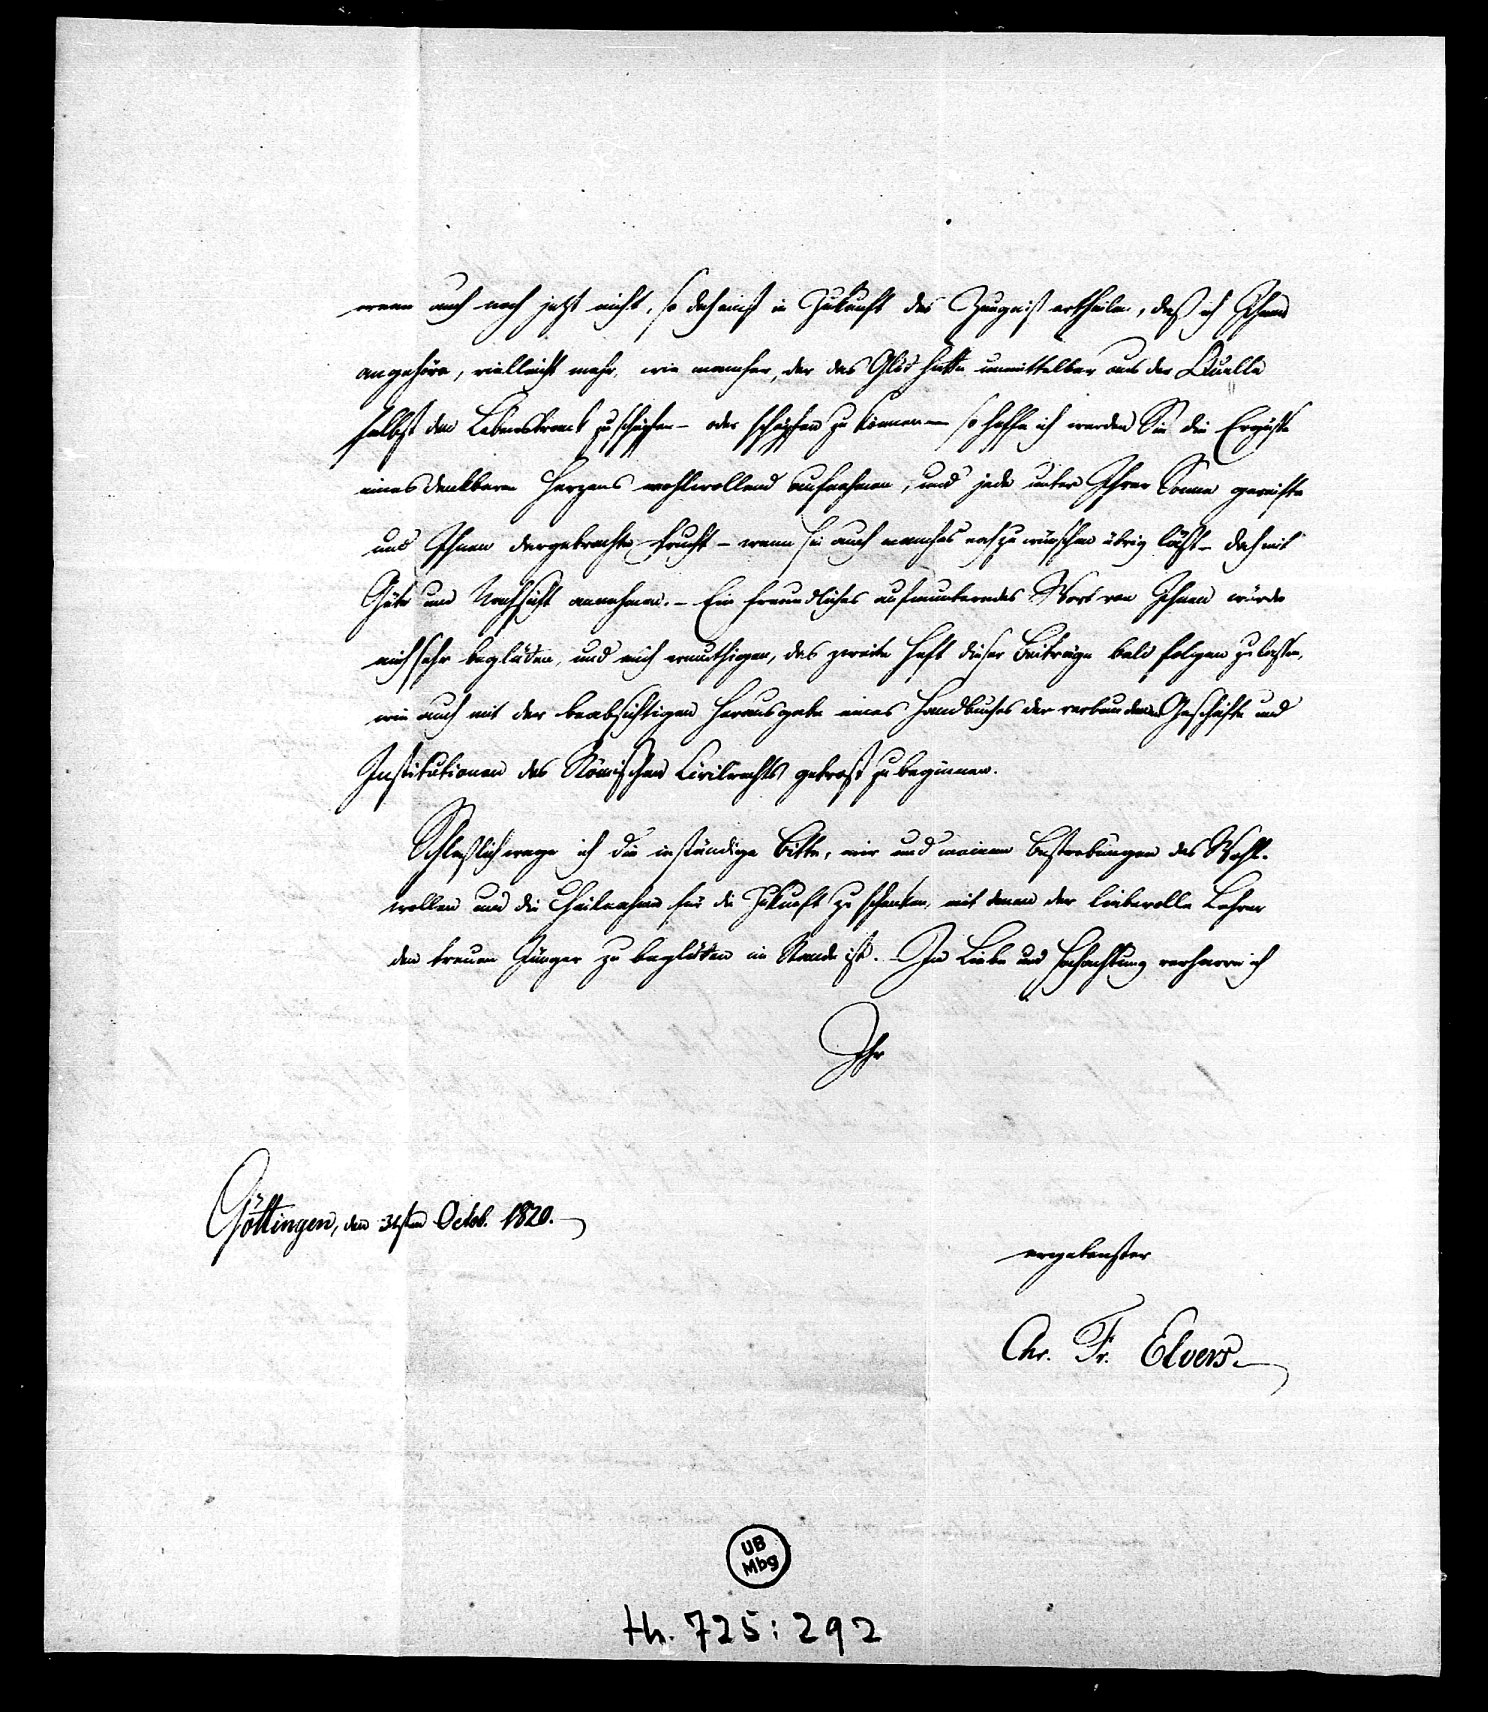 wenn auch noch jetzt nicht, so doch einst in Zukunft das Zeugniß ertheilen, daß ich Ihnen
angehöre, vielleicht mehr, wie mancher, der das Glück hatte unmittelbar aus der Quelle
selbst den Lebenstrank zu schöpfen – oder schöpfen zu können – so hoffe ich werden Sie die Ergüße
eines dankbaren Herzens wohlwollend aufnehmen, und jede unter Ihrer Sonne gereifte
und Ihnen dargebrachte Frucht – wenn sie auch manches noch zu wünschen übrig läßt – doch mit
Güte und Nachsicht annehmen. – Ein freundliches aufmunterndes Wort von Ihnen würde
mich sehr beglücken, und mich ermuthigen, das zweite Heft dieser Beiträge bald folgen zu lassen,
wie auch mit der beabsichtigen Herausgabe eines Handbuches der verbundenen Geschichte und
Institutionen des Römischen Civilrechts getrost zu beginnen.
Schließlich wage ich die inständige Bitte, mir und meinen Bestrebungen das Wohl-
wollen und die Theilnahme für die Zukunft zu schenken, mit denen der liebevolle Lehrer
den treuen Jünger zu beglücken im Stande ist. – In Liebe und Hochachtung verharre ich
Ihr
Göttingen, den 31sten Octob. 1820.
ergebenster
Chr. Fr. Elvers.
UB
Mbg
Hs. 725:292